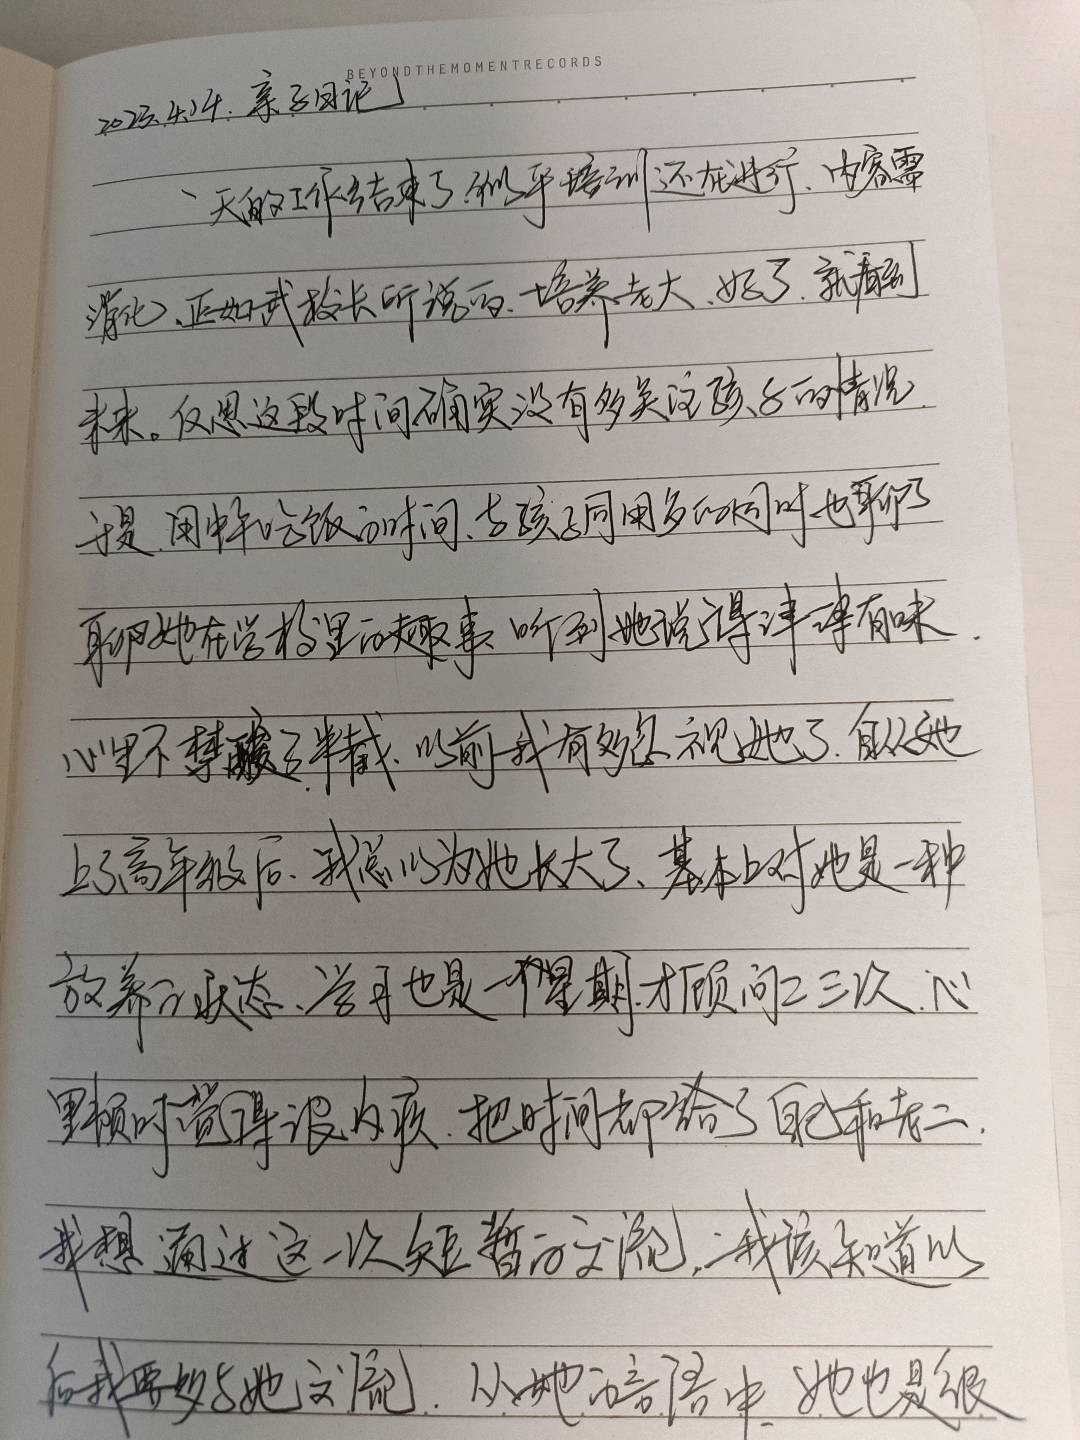 BEYONDTHEMOMENTRECORDS
2023.4.14. 亲子日记
一天的工作结束了.似乎培训还在进行、内容需
消化、正如武校长所说的、培养老大、好了、就看到
未来。反思这段时间确实没有多关注孩子的情况.
于是.用中午吃饭的时间、与孩子同用的同时也聊了
聊她在学校里的趣事、听到她说得津津有味.
心里不禁酸了半截、以前我有多忽视她了、自从她
上了高年级后、我总以为她长大了、基本上对她是一种
放养的状态、学习也是一个星期才顾问二三次.心
里顿时觉得很内疚.把时间都给了自己和老二.
我想通过这一次短暂的交流,我该知道以
后我要多与她交流.从她的言语中、她也是很